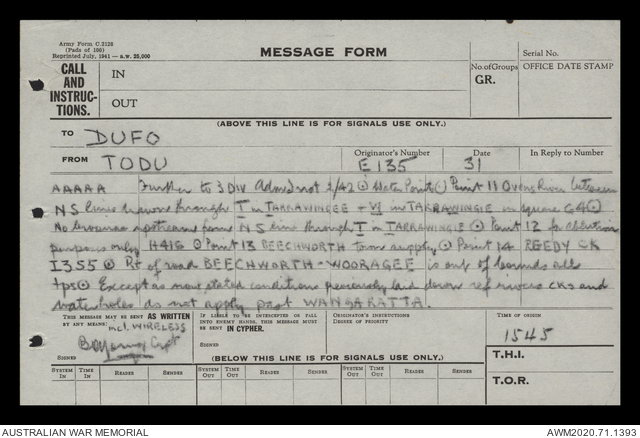 Army Form C.2128
(Pads of 100)
Reprinted July, 1941 — s.w. 25,000
MESSAGE FORM
Serial No.
CALL AND INSTRUC-TIONS.
IN
OUT
No of Groups
GR.
OFFICE DATE STAMP
(ABOVE THIS LINE IS FOR SIGNALS USE ONLY.)
TO DUFO
FROM TODU
Originator's Number
E 135
Date
31
In Reply to Number
AAAAA Further to 3 DIV Adm Inst 2/42 Water Points Point 11 Ovens River between
NS line drawn through T in TARRAWINGEE + in TARRAWINGIE in square G4
No upstream from NS line through T in TARRAWINGIE Point 12 for ablution
purposes only H416 Point 13 BEECHWORTH town supply Point 14 REEDY CK
I355 Pt of road BEECHWORTH - WOORAGEE is out of bounds all
tps Except as now stated conditions previously laid down ref rivers cks and
waterholes do not apply past WANGARATTA.
THIS MESSAGE MAY BE SENT AS WRITTEN BY ANY MEANS
incl. WIRELESS
Capt
SIGNED
IF LIABLE TO BE INTERCEPTED OR FALL INTO ENEMY HANDS, THIS MESSAGE MUST BE SENT IN CYPHER.
SIGNED
ORIGINATOR'S INSTRUCTIONS
DEGREE OF PRIORITY
TIME OF ORIGIN
1545
T.H.I.
T.O.R.
(BELOW THIS LINE IS FOR SIGNALS USE ONLY.)
SYSTEM IN TIME IN READER SENDER SYSTEM OUT TIME OUT READER SENDER SYSTEM OUT TIME OUT READER SENDER
AUSTRALIAN WAR MEMORIAL
AWM2020.71.1393